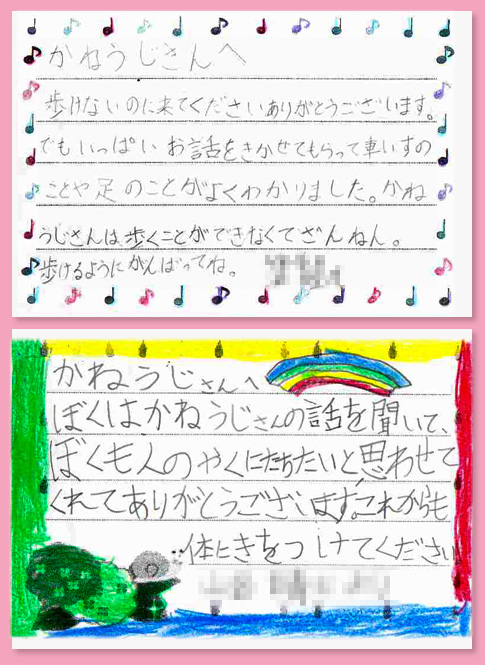 かねうじさんへ
歩けないのに来てくださいありがとうございます。
でもいっぱいお話をきかせてもらって車いすの
ことや足のことがよくわかりました。かね
うじさんは、歩くことができなくてざんねん。
歩けるようにがんばってね。
かねうじさんへ
ぼくはかねうじさんの話を聞いて、
ぼくも人のやくにたちたいと思わせて
くれてありがとうございます。これからも
体にきをつけてください